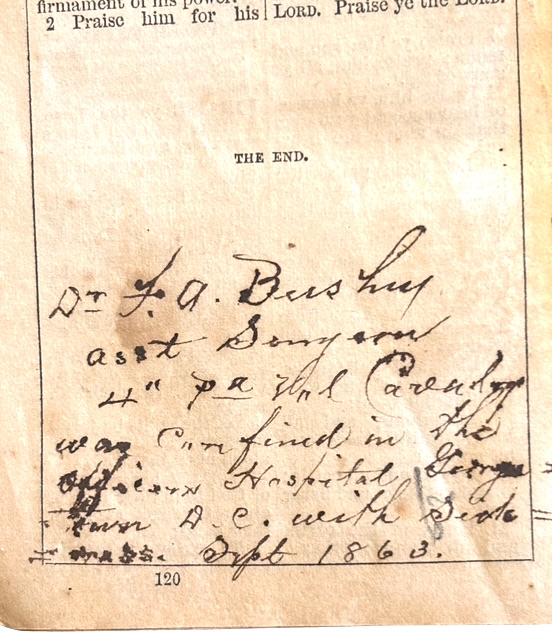 firmament of his power.
2 Praise him for his LORD. Praise ye the LORD.
THE END.
Dr F. A. Bushy
asst Surgeon
4" Pa Vol Cavalry
was Confined in the
Officers Hospital George=
town D.C. with Sick
=ness. Sept 1863.
120